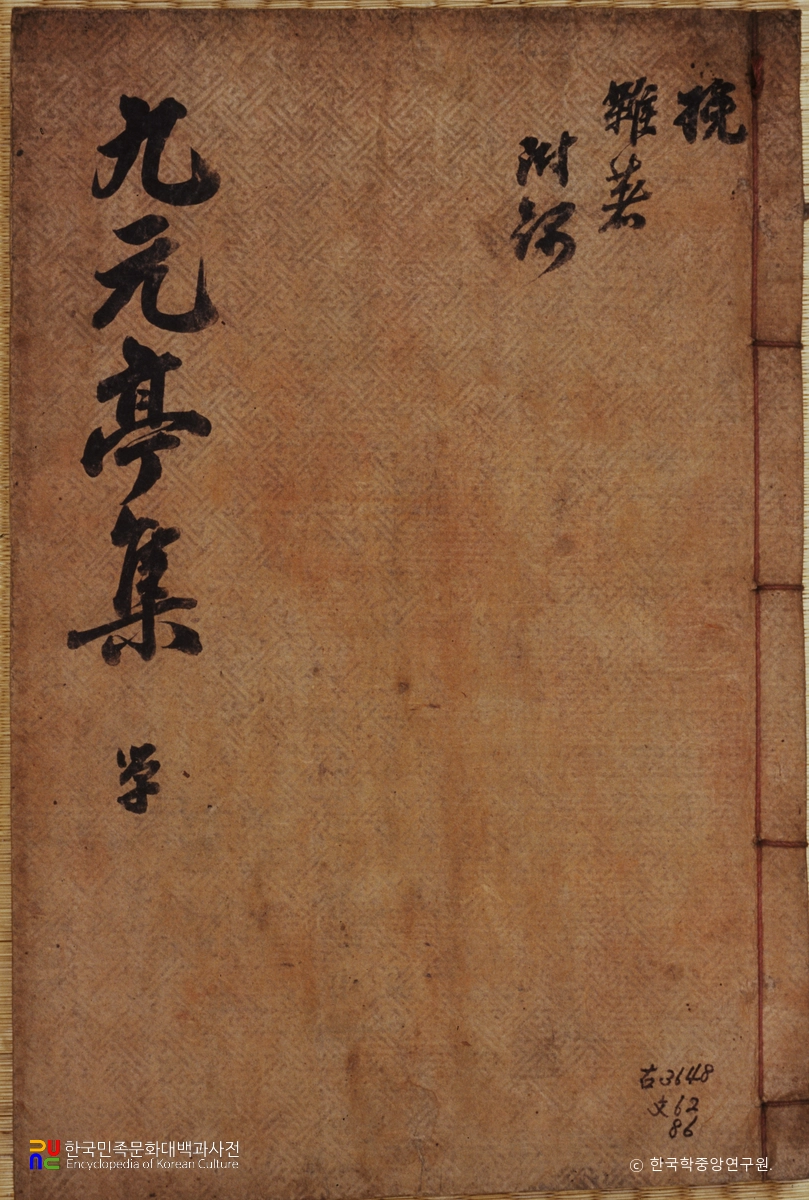 挽
雜著
附
九元亭集
古3648
文62
86
한국민족문화대백과사전
Encyclopedia of Korean Culture
ⓒ 한국학중앙연구원.